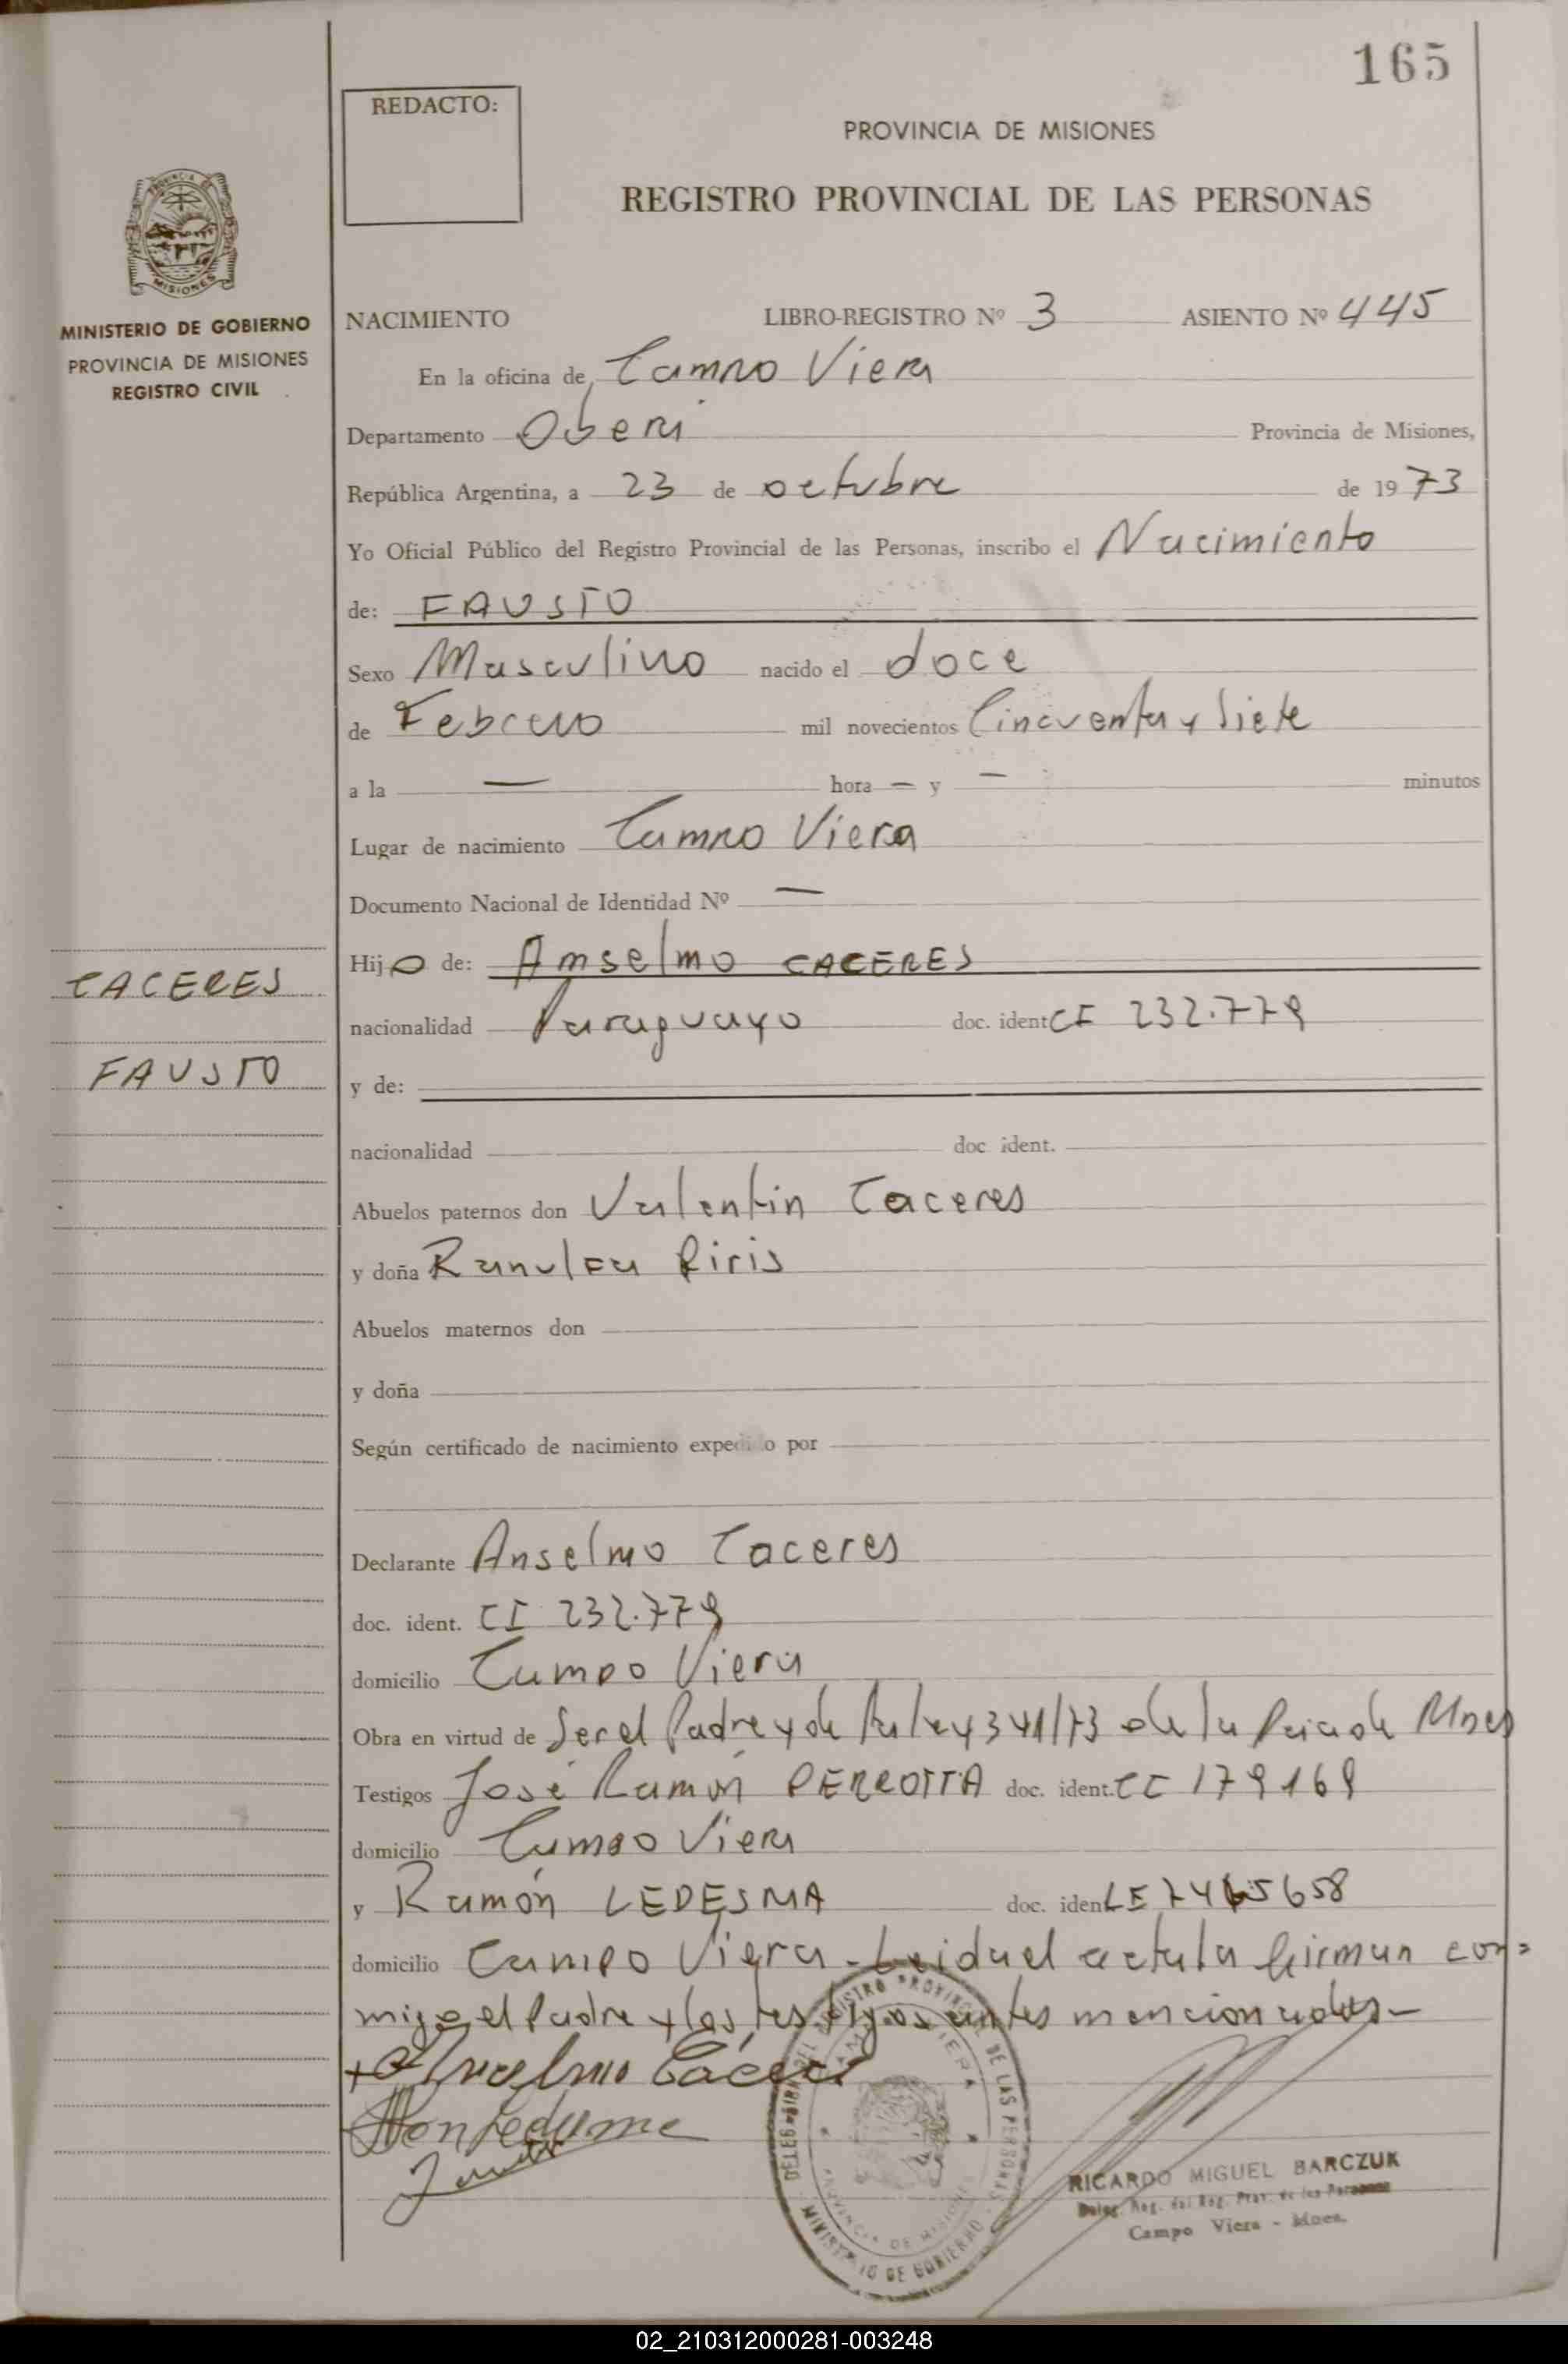 165
REDACTO:
PROVINCIA DE MISIONES
REGISTRO PROVINCIAL DE LAS PERSONAS
MISIONES
MINISTERIO DE GOBIERNO
PROVINCIA DE MISIONES
REGISTRO CIVIL
NACIMIENTO LIBRO-REGISTRO Nº 3 ASIENTO Nº 445
En la oficina de Campo Viera
Departamento Obera Provincia de Misiones,
República Argentina, a 23 de octubre de 1973
Yo Oficial Público del Registro Provincial de las Personas, inscribo el Nacimiento
de: FAUSTO
Sexo Masculino nacido el doce
de Febrero mil novecientos Cincuenta y Siete
a la — hora — y — minutos
Lugar de nacimiento Campo Viera
Documento Nacional de Identidad Nº —
Hijo de: Anselmo CACERES
CACERES
nacionalidad Paraguayo doc. ident CI 232.779
FAUSTO
y de:
nacionalidad doc. ident.
Abuelos paternos don Valentin Caceres
y doña Ranulfa Riris
Abuelos maternos don
y doña
Según certificado de nacimiento expedido por
Declarante Anselmo Caceres
doc. ident. CI 232.779
domicilio Campo Viera
Obra en virtud de Ser el Padre y de la ley 341/73 de la Pcia de Mnes
Testigos José Ramón PERROTTA doc. ident. CI 179169
domicilio Campo Viera
y Ramón LEDESMA doc. iden LE 7465658
domicilio Campo Viera - Leida el acta la firman con=
migo el Padre y los testigos antes mencionados.-
Anselmo Cáceres
DELEG. DEL REGISTRO PROVINCIAL DE LAS PERSONAS
CAMPO VIERA
PROVINCIA DE MISIONES
MINISTERIO DE GOBIERNO
RICARDO MIGUEL BARCZUK
Deleg. Reg. del Reg. Prov. de las Personas
Campo Viera - Mnes.
02_210312000281-003248